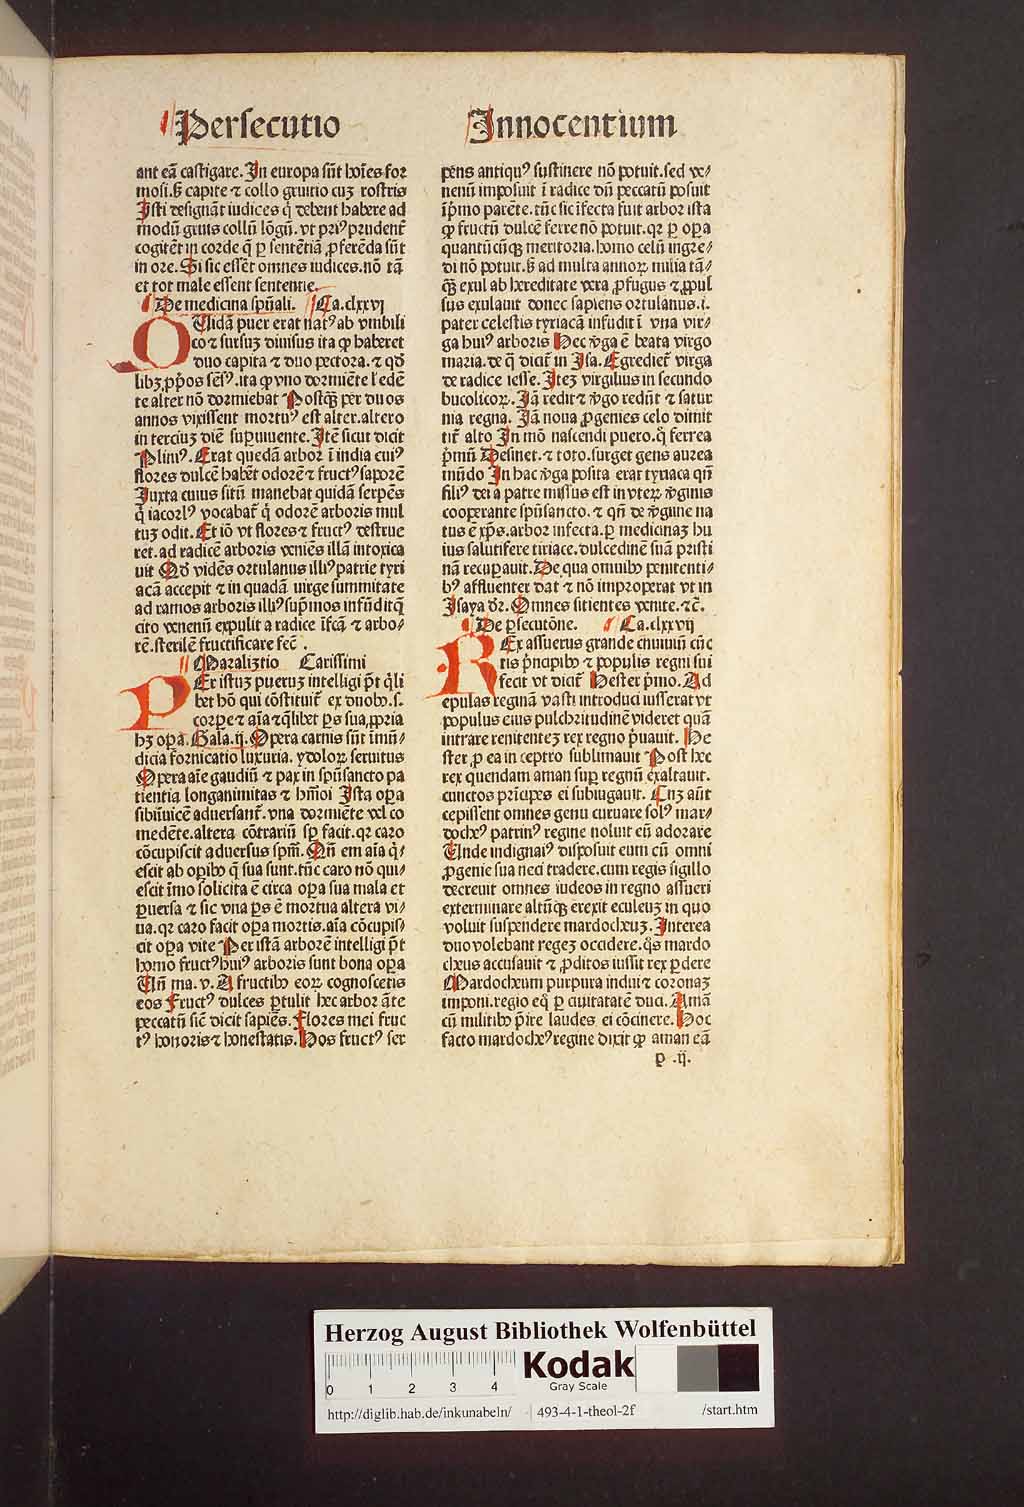 Persecutio
Innocentium
ant eā castigare. In europa sūt hoīes for
mosi. s̄ capite ⁊ collo gruino cuʒ rostris
Isti designāt iudices q̄ debent habere ad
modū gruis collū lōgū. vt priꝰ prudent̄
cogitēt in corde q̄ ꝑ sententiā ꝓferēda sūt
in ore. Si sic essēt omnes iudices. nō tā
et tot male essent sententie.
De medicina spūali. Ca. clxxvj
QUidā puer erat natꝰ ab vmbili
co ⁊ sursuʒ diuisus ita ꝙ haberet
duo capita ⁊ duo pectora. ⁊ qđ
libʒ ꝓpōs sēsꝰ. ita ꝙ vno dormiēte ł edē
te alter nō dormiebat Postq̄ʒ per duos
annos vixissent mortuꝰ est alter. altero
in terciuʒ diē suꝑuiuente. Itē sicut dicit
Pliniꝰ. Erat quedā arbor ī india cuiꝰ
flores dulcē habēt odorē ⁊ fructꝰ saporē
Juxta cuius sitū manebat quidā serpēs
q̄ iacorlꝰ vocabat̄ q̄ odorē arboris mul
tuʒ odit. Et iō vt flores ⁊ fructꝰ destrue
ret. ad radicē arboris veniēs illā intoxica
uit Qđ vidēs ortulanus illiꝰ patrie tyri
acā accepit ⁊ in quadā uirge summitate
ad ramos arboris illiꝰ supͣmos infūdit q̄
cito venenū expulit a radice īfcā ⁊ arbo⸗
rē. sterilē fructificare fec̄.
Moralizatio Carissimi
PEr istuʒ pueruʒ intelligi pōt q̄li
bet hō qui cōstituit̄ ex duobꝰ. s.
corpe ⁊ aīa ⁊ q̄libet ps̄ sua, ꝓpria
hʒ oꝑa. Gala. ij. Opera carnis sūt īmū⸗
dicia fornicatio luxuria. ydoloꝝ seruitus
Opera aīe gaudiū ⁊ pax in spūsancto pa
tientia longanimitas ⁊ hmōi Ista oꝑa
sibiīuicē aduersant̄. vna dormiēte vel co
medēte. altera cōtrariū sꝑ facit. qꝛ caro
cōcupiscit aduersus spm̄. Qn̄ em aīa q̄⸗
escit ab oꝑibꝰ q̄ sua sunt. tūc caro nō qui⸗
escit īmo solicita ē circa oꝑa sua mala et
ꝑuersa ⁊ sic vna ps̄ ē mortua altera vi⸗
ua. qꝛ caro facit oꝑa mortis. aīa cōcupis⸗
cit oꝑa vite Per istā arborē intelligi pōt
homo fructꝰ huiꝰ arboris sunt bona oꝑa
Un̄ ma. v. A fructibꝰ eoꝝ cognoscetis
eos Fructꝰ dulces ꝑtulit hec arbor āte
peccatū sic̄ dicit sapiēs. Flores mei fruc
tꝰ honoris ⁊ honestatis. Hos fructꝰ ser
pens antiquꝰ sustinere nō potuit. sed ve⸗
nenū imposuit ī radice dū peccatū posuit
īpͥmo parēte. tūc sic īfecta fuit arbor ista
ꝙ fructū dulcē ferre nō potuit. qꝛ ꝑ oꝑa
quantūcūq̄ʒ meritoria. homo celū ingre⸗
di nō potuit. s̄ ad multa annoꝝ milia tā⸗
q̄ʒ exul ab hereditate vera ꝓfugus ⁊ ꝓpul
sus exulauit donec sapiens ortulanus. i.
pater celestis tyriacā infudit ī vna vir⸗
ga huiꝰ arboris Hec v̄ga ē beata virgo
maria. de q̄ dicit̄ in Isa. Egrediet̄ virga
de radice iesse. Iteʒ virgilius in secundo
bucolicoꝝ. Jā redit ⁊ v̄go redūt ⁊ satur
nia regna. Jā noua ꝓgenies celo dimit
tit̄ alto In mō nascendi puero. q̄ ferrea
pͥmū Desinet. ⁊ toto. surget gens aurea
mūdo In hac v̄ga posita erat tyriaca qn̄
filiꝰ dei a patre missus est in vteꝝ v̄ginis
cooperante spūsancto. ⁊ qn̄ de v̄gine na
tus ē xp̄s. arbor infecta. ꝑ medicinaʒ hu
ius salutifere tiriace. dulcedinē suā pristi
nā recuꝑauit. De qua omnibꝰ penitenti⸗
bꝰ affluenter dat ⁊ nō improperat vt in
Isaya dr̄. Omnes sitientes venite. ⁊c̄.
De ꝑsecutōne. Ca. clxxvij
REx assuerus grande cōuiuiū cūc
tis pͥncipibꝰ ⁊ populis regni sui
fecit vt dicit̄ Hester pͥmo. Ad
epulas reginā vasti introduci iusserat vt
populus eius pulchritudinē videret quā
intrare renitenteʒ rex regno pͥuauit. He
ster, ꝓ ea in ceptro sublimauit Post hec
rex quendam aman suꝑ regnū exaltauit.
cunctos prīcipes ei subiugauit. Cuʒ aūt
cepissent omnes genu curuare solꝰ mar⸗
docheꝰ patrinꝰ regine noluit eū adorare
Unde indignatꝰ disposuit eum cū omni
ꝓgenie sua neci tradere. cum regis sigillo
decreuit omnes iudeos in regno assueri
exterminare altūq̄ʒ erexit eculeuʒ in quo
voluit suspendere mardocheuʒ. Interea
duo volebant regeʒ occidere. q̄s mardo
cheus accusauit ⁊ ꝓditos iussit rex ꝑdere
Mardocheum purpura indui ⁊ coronaʒ
imponi. regio eq̄ ꝑ ciuitatatē duci. Amā
cū militibꝰ pͥire laudes ei cōcinere. Hoc
facto mardocheꝰ regine dixit ꝙ aman eā
p .ij.
Herzog August Bibliothek Wolfenbüttel
0 1 2 3 4
Kodak
Gray Scale
http://diglib.hab.de/inkunabeln/ 493-4-1-theol-2f /start.htm